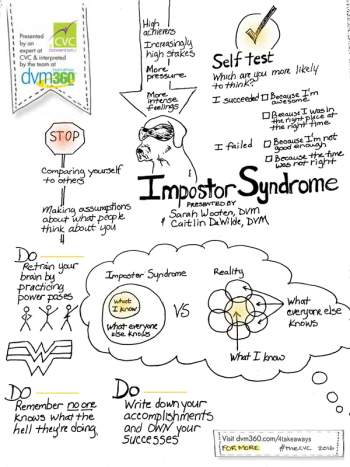 Presented
by an
expert at
CVC & interpreted
by the team at
CVC
dvm360
High
achievers
Increasingly
high stakes
More
pressure
More
intense
feelings
Self test
Which are you more likely
to think?
I succeeded
Because I'm
awesome
Because I was in
the right place at
the right time
I failed
Because I'm not
good enough
Because the time
was not right
STOP
Comparing yourself
to others
Making assumptions
about what people
think about you
Impostor Syndrome
PRESENTED BY
Sarah Wooten, DVM
& Caitlin DeWilde, DVM
Do
Retrain your
brain by
practicing
power poses
Impostor Syndrome
What
I know
What everyone
else knows
VS
Reality
What
everyone else
knows
What I know
Do
Remember no one
knows what the
hell they're doing.
Do
Write down your
accomplishments
and OWN your
successes
Visit dvm360.com/4takeaways
FOR MORE #theCVC 2016